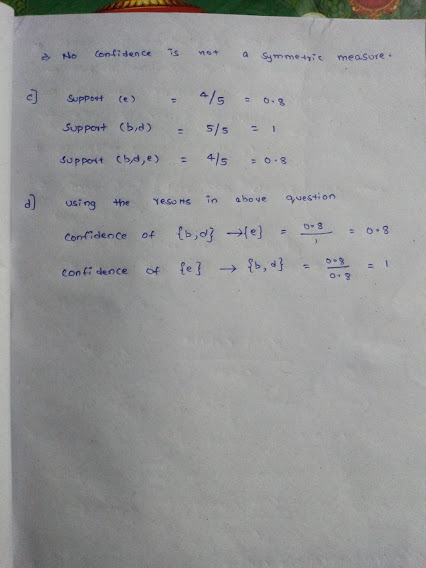 ⇒ No confidence is not a symmetric measure.
c] support (e) = 4/5 = 0.8
support (b,d) = 5/5 = 1
support (b,d,e) = 4/5 = 0.8
d] using the results in above question
confidence of {b,d} → {e} = 0.8/1 = 0.8
confidence of {e} → {b,d} = 0.8/0.8 = 1